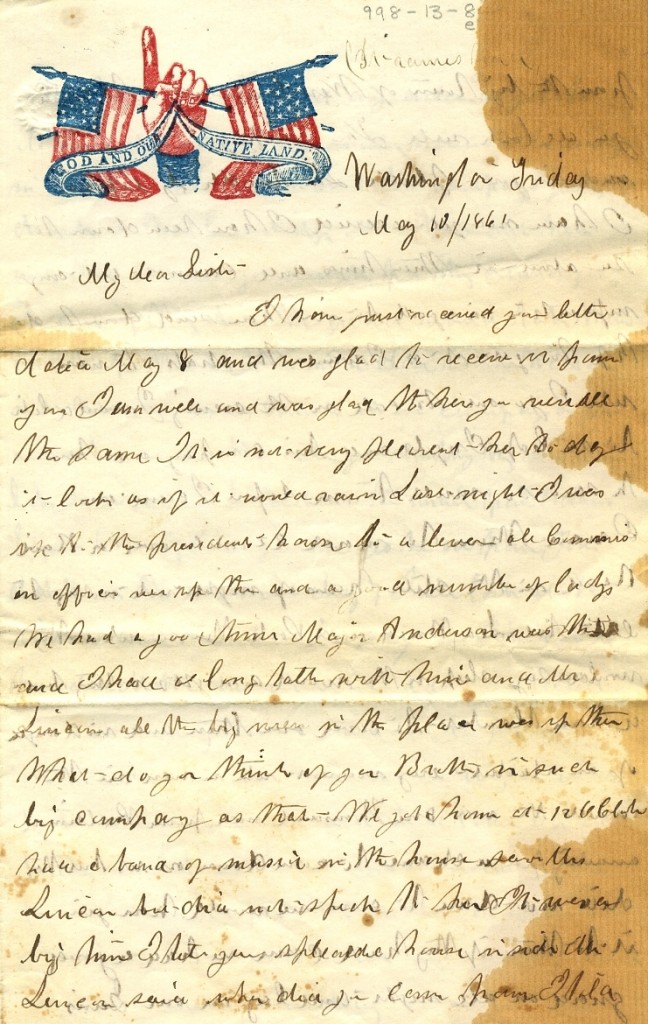 998-13-8
e
GOD AND OUR NATIVE LAND.
Washington Friday
May 10/1861
My dear Sister
I have just received your letter
dated May 8 and was glad to receive it from
you I am well and was glad to hear you were all
the same It is not very pleasent her to day
it looks as if it would rain Last night I was
up to the presidents house to a levee all Commis
on officers were up there and a good number of ladys
We had a good time Major Anderson was there
and I had a long talk with him and Mr
Lincoln all the big men in the place was up there
What do you think of your Brother in such
big company as that We got home at 12 OClock
had a band of music in the house saw Mrs
Lincoln but did not speak to her It was a
big time I tell you splendid house inside Mr
Lincoln said where did you come from I told